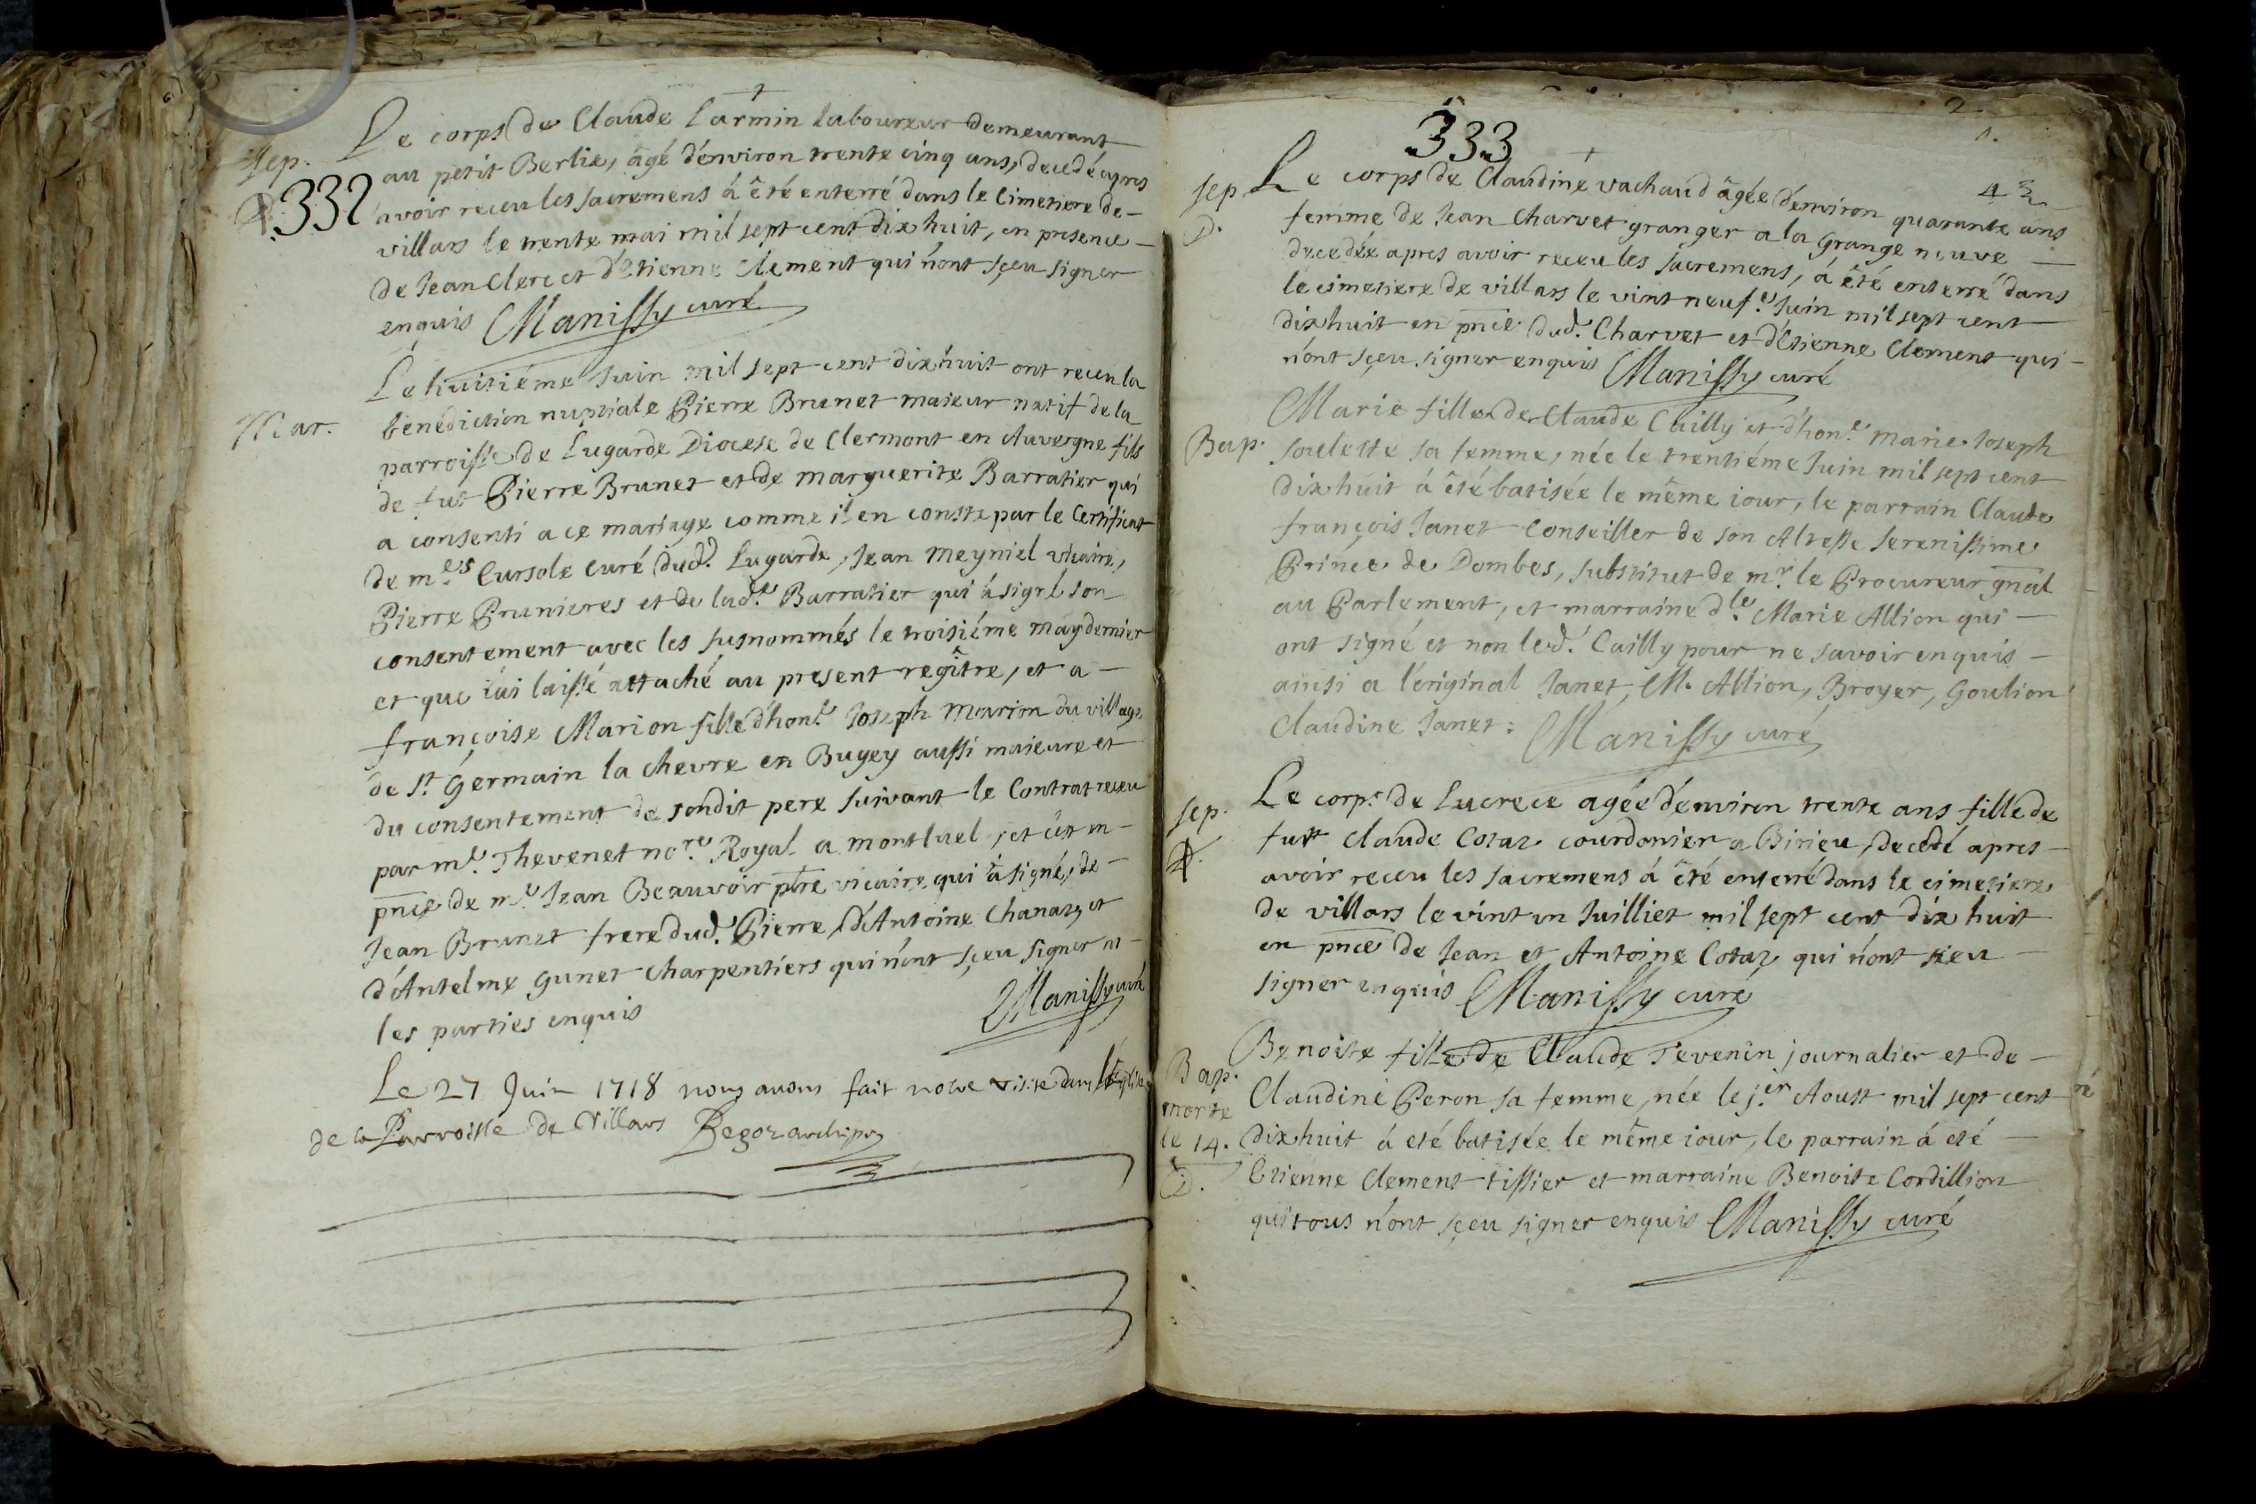 †
sep.
332
Le corps de Claude Carmin laboureur demeurant
au petit Berlie, âgé d'environ trente cinq ans, decedé apres
avoir receu les sacremens á êté enterré dans le Cimetiere de
villars le trente mai mil sept cent dix huit, en presence
de Jean Clerc et d'Etienne Clement qui n'ont sçeu signer
enquis Manissy curé
Mar.
Le huitiéme Juin mil sept cent dix huit ont receu la
benediction nuptiale Pierre Brunet maieur natif de la
parroisse de Lugarde Diocese de Clermont en Auvergne fils
de fut Pierre Brunet et de marguerite Barratier qui
a consenti a ce mariage comme il en conste par le Certificat
de m.es Cursole curé dud. Lugarde, Jean Meyniel vicaire,
Pierre Prunieres et de lad.e Barratier qui á signé son
consentement avec les susnommés le troisiéme may dernier
et que i'ai laissé attaché au present regître, et a
françoise Marion fille d'hon.e Joseph Marion du village
de S.t Germain la chevre en Bugey aussi maieure et
du consentement de sondit pere suivant le Contrat receu
par m.e Thevenet no.re Royal a montluel, et ce en
pnce de m.e Jean Beauvoir ptre vicaire qui á signé, de
Jean Brunet frere dud. Pierre, d'Antoine Chanaz, et
d'Antelme Gunet charpentiers qui n'ont sçeu signer ni
les parties enquis
Manissy curé
Le 27 Juin 1718 nous avons fait notre visite dans l'église
de la Parroisse de Villars Begoz archipr
2
333
†
sep
D.
Le corps de Claudine vachaud âgée d'environ quarante ans
femme de Jean Charvet granger a la Grange neuve
decedée apres avoir receu les sacremens, á êté enterré dans
le cimetiere de villars le vint neuf.e Juin mil sept cent
dix huit en pnce dud. Charvet et d'Etienne Clement qui
n'ont sçeu signer enquis Manissy curé
Bap.
Marie fille de Claude Cuilly et d'hon.e Marie Joseph
Soulette sa femme, née le trentiéme Juin mil sept cent
dix huit á êté batisée le même iour, le parrain Claude
françois Janet Conseiller de son Altesse Serenissime
Prince de Dombes, substitut de m.r le Procureur gnal
au Parlement, et marraine d.le Marie Allion qui
ont signé et non led. Cuilly pour ne savoir enquis
ainsi a l'original Janet, M. Allion, Broyer, Goulion
Claudine Janet: Manissy curé
sep.
Le corps de Lucrece agée d'environ trente ans fille de
fut Claude Cotaz courdonier a Birieu, decedé apres
avoir receu les sacremens á êté enterré dans le cimetiere
de villars le vint un Juilliet mil sept cent dix huit
en pnce de Jean et Antoine Cotaz qui n'ont sceu
signer enquis Manissy curé
Bap.
morte
le 14.
D.
Benoite fille de Claude Tevenin journalier et de
Claudine Peron sa femme, née le j.er Aoust mil sept cent
dix huit á eté batisée le même iour, le parrain á eté
Etienne Clement tissier et marraine Benoite Cordillion
qui tous n'ont sçeu signer enquis Manissy curé